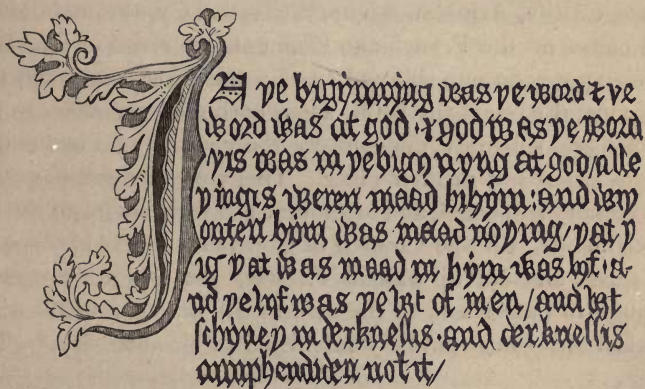 IN ye bigynnyng was ye word & ye
word was at god · & god was ye word
/yis was in ye bigynnyng at god/alle
yingis weren maad bi hym: and wiy
outen hym was maad no ying/ yat y
ig yat was maad in hym was lyf · a-
nd ye lyf was ye liȝt of men/ and liȝt
schyney in derknessis · and derknessis
comphendiden not it/